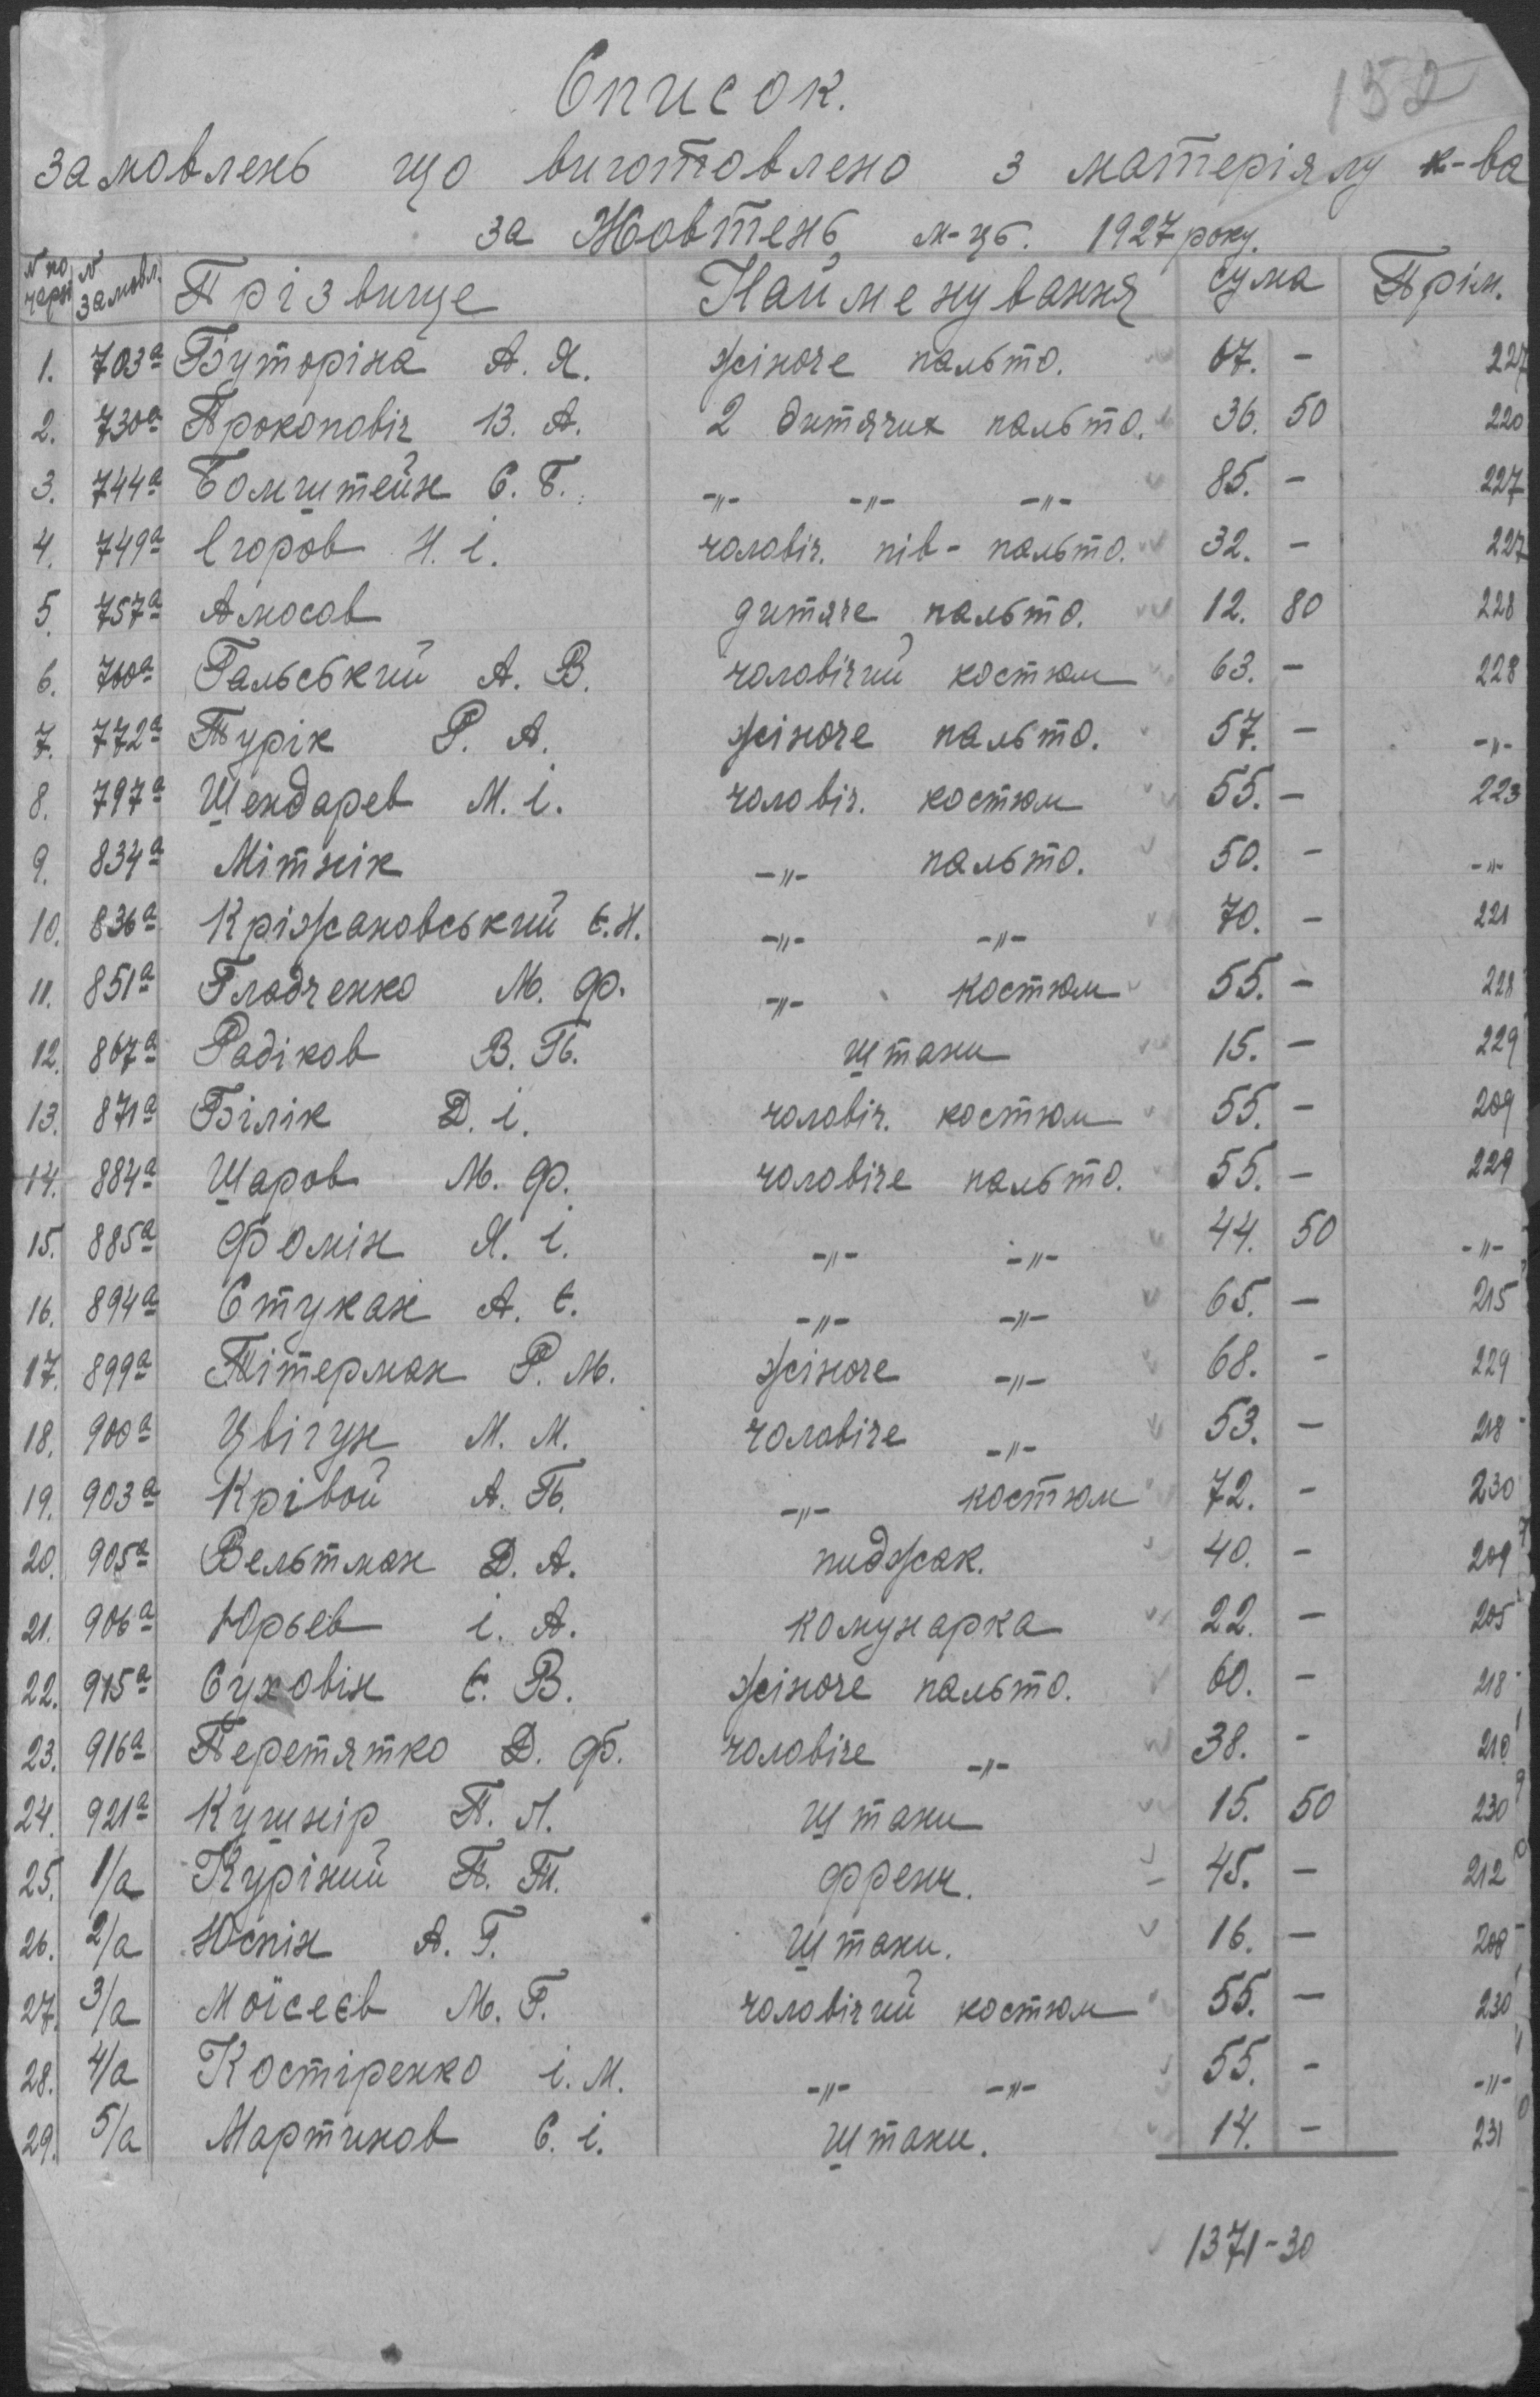 152
Список.
замовлень що виготовлено з матеріялу к-ва
за Жовтень м-ць. 1927 року.
N по черзі N замовл. Прізвище Найменування сума Прім.
1. 703а Буторіна А. Я. жіноче пальто. 67. - 227
2. 730а Прокопвіч В. А. 2 дитячих пальто. 36. 50 220
3. 744а Бомштейн С. Б. -„- -„- -„- 85. - 227
4. 749а Єгоров Н. І. чоловіч. пів-пальто. 32. - 227
5. 757а Амосов дитяче пальто. 12. 80 228
6. 760а Гальський А. В. чоловічий костюм 63. - 228
7. 772а Турік Р. А. жіноче пальто. 57. - -„-
8. 797а Шендарев М. І. чоловіч. костюм 55. - 223
9. 834а Мітнік -„- пальто. 50. - -„-
10. 836а Кріжановський Є. Н. -„- -„- 70. - 221
11. 851а Гладченко М. Ф. -„- костюм 55. - 228
12. 867а Радіков В. П. штани 15. - 229
13. 871а Білік Д. І. чоловіч. костюм 55. - 209
14. 884а Шаров М. Ф. чоловіче пальто. 55. - 229
15. 885а Фомін Я. І. -„- -„- 44. 50 -„-
16. 894а Стукан А. Є. -„- -„- 65. - 215
17. 899а Пітерман Р. М. жіноче -„- 68. - 229
18. 900а Цвігун М. М. чоловіче -„- 53. - 218
19. 903а Крівой А. П. -„- костюм 72. - 230
20. 905а Вельтман Д. А. пиджак. 40. - 209
21. 906а Юрьев І. А. комунарка 22. - 205
22. 915а Суховін Є. В. жіноче пальто. 60. - 218
23. 916а Перетятко Д. Ф. чоловіче -„- 38. - 210
24. 921а Кушнір П. Л. штани 15. 50 230
25. 1/а Курінний П. Т. френч. 45. - 212
26. 2/а Юспін А. Г. штани. 16. - 208
27. 3/а Моїсеєв М. Г. чоловічий костюм 55. - 230
28. 4/а Костіренко І. М. -„- -„- 55. - -„-
29. 5/а Мартинов С. І. штани. 14. - 231
1371-30